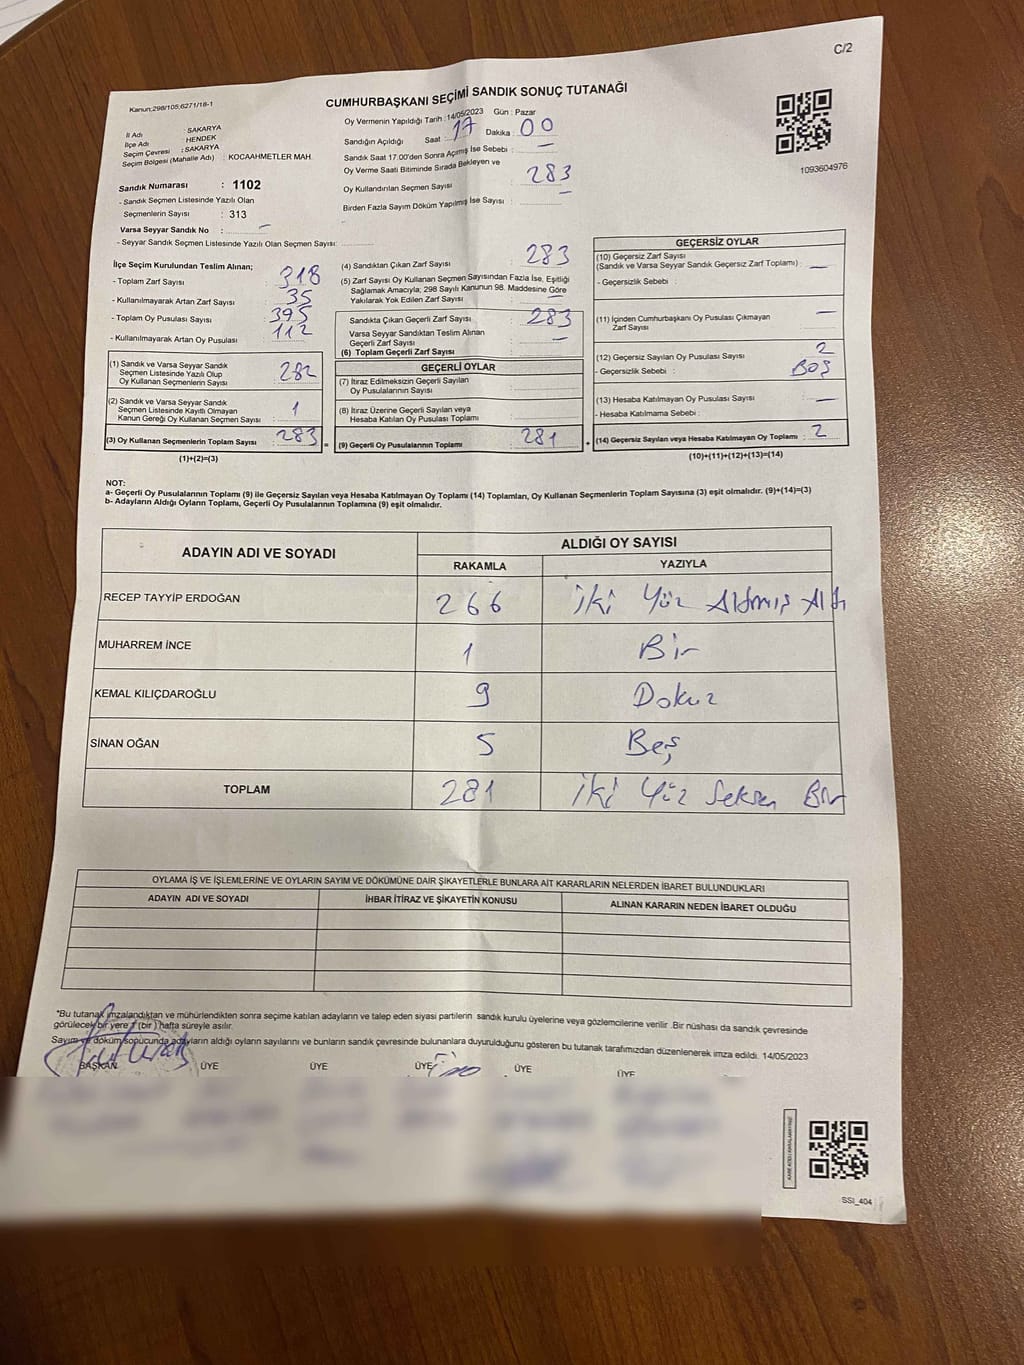 C/2
Kanun:298/105;6271/18-1
CUMHURBAŞKANI SEÇİMİ SANDIK SONUÇ TUTANAĞI
İl Adı : SAKARYA
İlçe Adı : HENDEK
Seçim Çevresi : SAKARYA
Seçim Bölgesi (Mahalle Adı) : KOCAAHMETLER MAH.
Sandık Numarası : 1102
- Sandık Seçmen Listesinde Yazılı Olan
Seçmenlerin Sayısı : 313
Varsa Seyyar Sandık No : —
- Seyyar Sandık Seçmen Listesinde Yazılı Olan Seçmen Sayısı:
Oy Vermenin Yapıldığı Tarih : 14/05/2023 Gün : Pazar
Sandığın Açıldığı Saat : 17 Dakika : 00
Sandık Saat 17.00'den Sonra Açımış İse Sebebi : —
Oy Verme Saati Bitiminde Sırada Bekleyen ve
Oy Kullandırılan Seçmen Sayısı : 283
Birden Fazla Sayım Döküm Yapılmış İse Sayısı : —
1093604976
İlçe Seçim Kurulundan Teslim Alınan;
- Toplam Zarf Sayısı : 318
- Kullanılmayarak Artan Zarf Sayısı : 35
- Toplam Oy Pusulası Sayısı : 395
- Kullanılmayarak Artan Oy Pusulası : 112
(1) Sandık ve Varsa Seyyar Sandık
Seçmen Listesinde Yazılı Olup
Oy Kullanan Seçmenlerin Sayısı : 282
(2) Sandık ve Varsa Seyyar Sandık
Seçmen Listesinde Kayıtlı Olmayan
Kanun Gereği Oy Kullanan Seçmen Sayısı : 1
(3) Oy Kullanan Seçmenlerin Toplam Sayısı : 283
(1)+(2)=(3)
(4) Sandıktan Çıkan Zarf Sayısı : 283
(5) Zarf Sayısı Oy Kullanan Seçmen Sayısından Fazla İse, Eşitliği
Sağlamak Amacıyla; 298 Sayılı Kanunun 98. Maddesine Göre
Yakılarak Yok Edilen Zarf Sayısı : —
Sandıkta Çıkan Geçerli Zarf Sayısı : 283
Varsa Seyyar Sandıktan Teslim Alınan
Geçerli Zarf Sayısı : —
(6) Toplam Geçerli Zarf Sayısı
GEÇERLİ OYLAR
(7) İtiraz Edilmeksizin Geçerli Sayılan
Oy Pusulalarının Sayısı :
(8) İtiraz Üzerine Geçerli Sayılan veya
Hesaba Katılan Oy Pusulası Toplamı :
= (9) Geçerli Oy Pusulalarının Toplamı : 281
GEÇERSİZ OYLAR
(10) Geçersiz Zarf Sayısı
(Sandık ve Varsa Seyyar Sandık Geçersiz Zarf Toplamı) : —
- Geçersizlik Sebebi :
(11) İçinden Cumhurbaşkanı Oy Pusulası Çıkmayan
Zarf Sayısı : —
(12) Geçersiz Sayılan Oy Pusulası Sayısı : 2
- Geçersizlik Sebebi : BOŞ
(13) Hesaba Katılmayan Oy Pusulası Sayısı : —
- Hesaba Katılmama Sebebi :
+ (14) Geçersiz Sayılan veya Hesaba Katılmayan Oy Toplamı : 2
(10)+(11)+(12)+(13)=(14)
NOT:
a- Geçerli Oy Pusulalarının Toplamı (9) ile Geçersiz Sayılan veya Hesaba Katılmayan Oy Toplamı (14) Toplamları, Oy Kullanan Seçmenlerin Toplam Sayısına (3) eşit olmalıdır. (9)+(14)=(3)
b- Adayların Aldığı Oyların Toplamı, Geçerli Oy Pusulalarının Toplamına (9) eşit olmalıdır.
ADAYIN ADI VE SOYADI
ALDIĞI OY SAYISI
RAKAMLA YAZIYLA
RECEP TAYYİP ERDOĞAN 266 iki Yüz Altmış Altı
MUHARREM İNCE 1 Bir
KEMAL KILIÇDAROĞLU 9 Dokuz
SİNAN OĞAN 5 Beş
TOPLAM 281 iki Yüz Seksen Bir
OYLAMA İŞ VE İŞLEMLERİNE VE OYLARIN SAYIM VE DÖKÜMÜNE DAİR ŞİKAYETLERLE BUNLARA AİT KARARLARIN NELERDEN İBARET BULUNDUKLARI
ADAYIN ADI VE SOYADI İHBAR İTİRAZ VE ŞİKAYETİN KONUSU ALINAN KARARIN NEDEN İBARET OLDUĞU
*Bu tutanak imzalandıktan ve mühürlendikten sonra seçime katılan adayların ve talep eden siyasi partilerin sandık kurulu üyelerine veya gözlemcilerine verilir .Bir nüshası da sandık çevresinde
görülecek bir yere 1 (bir ) hafta süreyle asılır.
Sayım ve döküm sonucunda adayların aldığı oyların sayılarını ve bunların sandık çevresinde bulunanlara duyurulduğunu gösteren bu tutanak tarafımızdan düzenlenerek imza edildi. 14/05/2023
BAŞKAN ÜYE ÜYE ÜYE ÜYE ÜYE
SSI_404